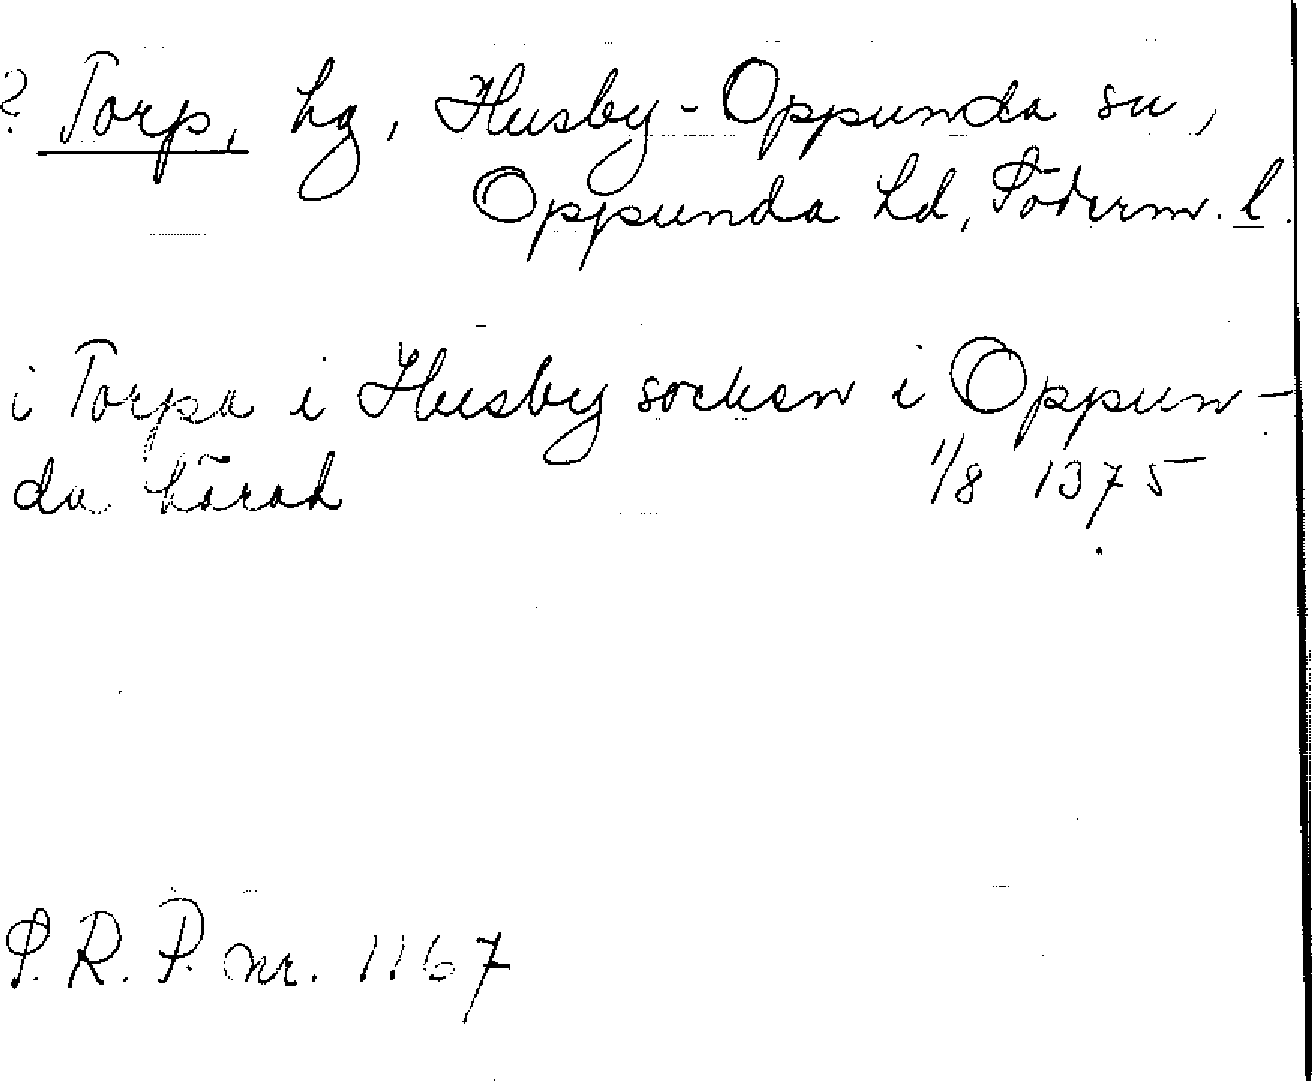 ? Torp, hg, Husby-Oppunda sn,
Oppunda hd, Söderm. l.
i Torpa i Husby socken i Oppun-
da härad 1/8 1375
S. R. P. nr. 1167